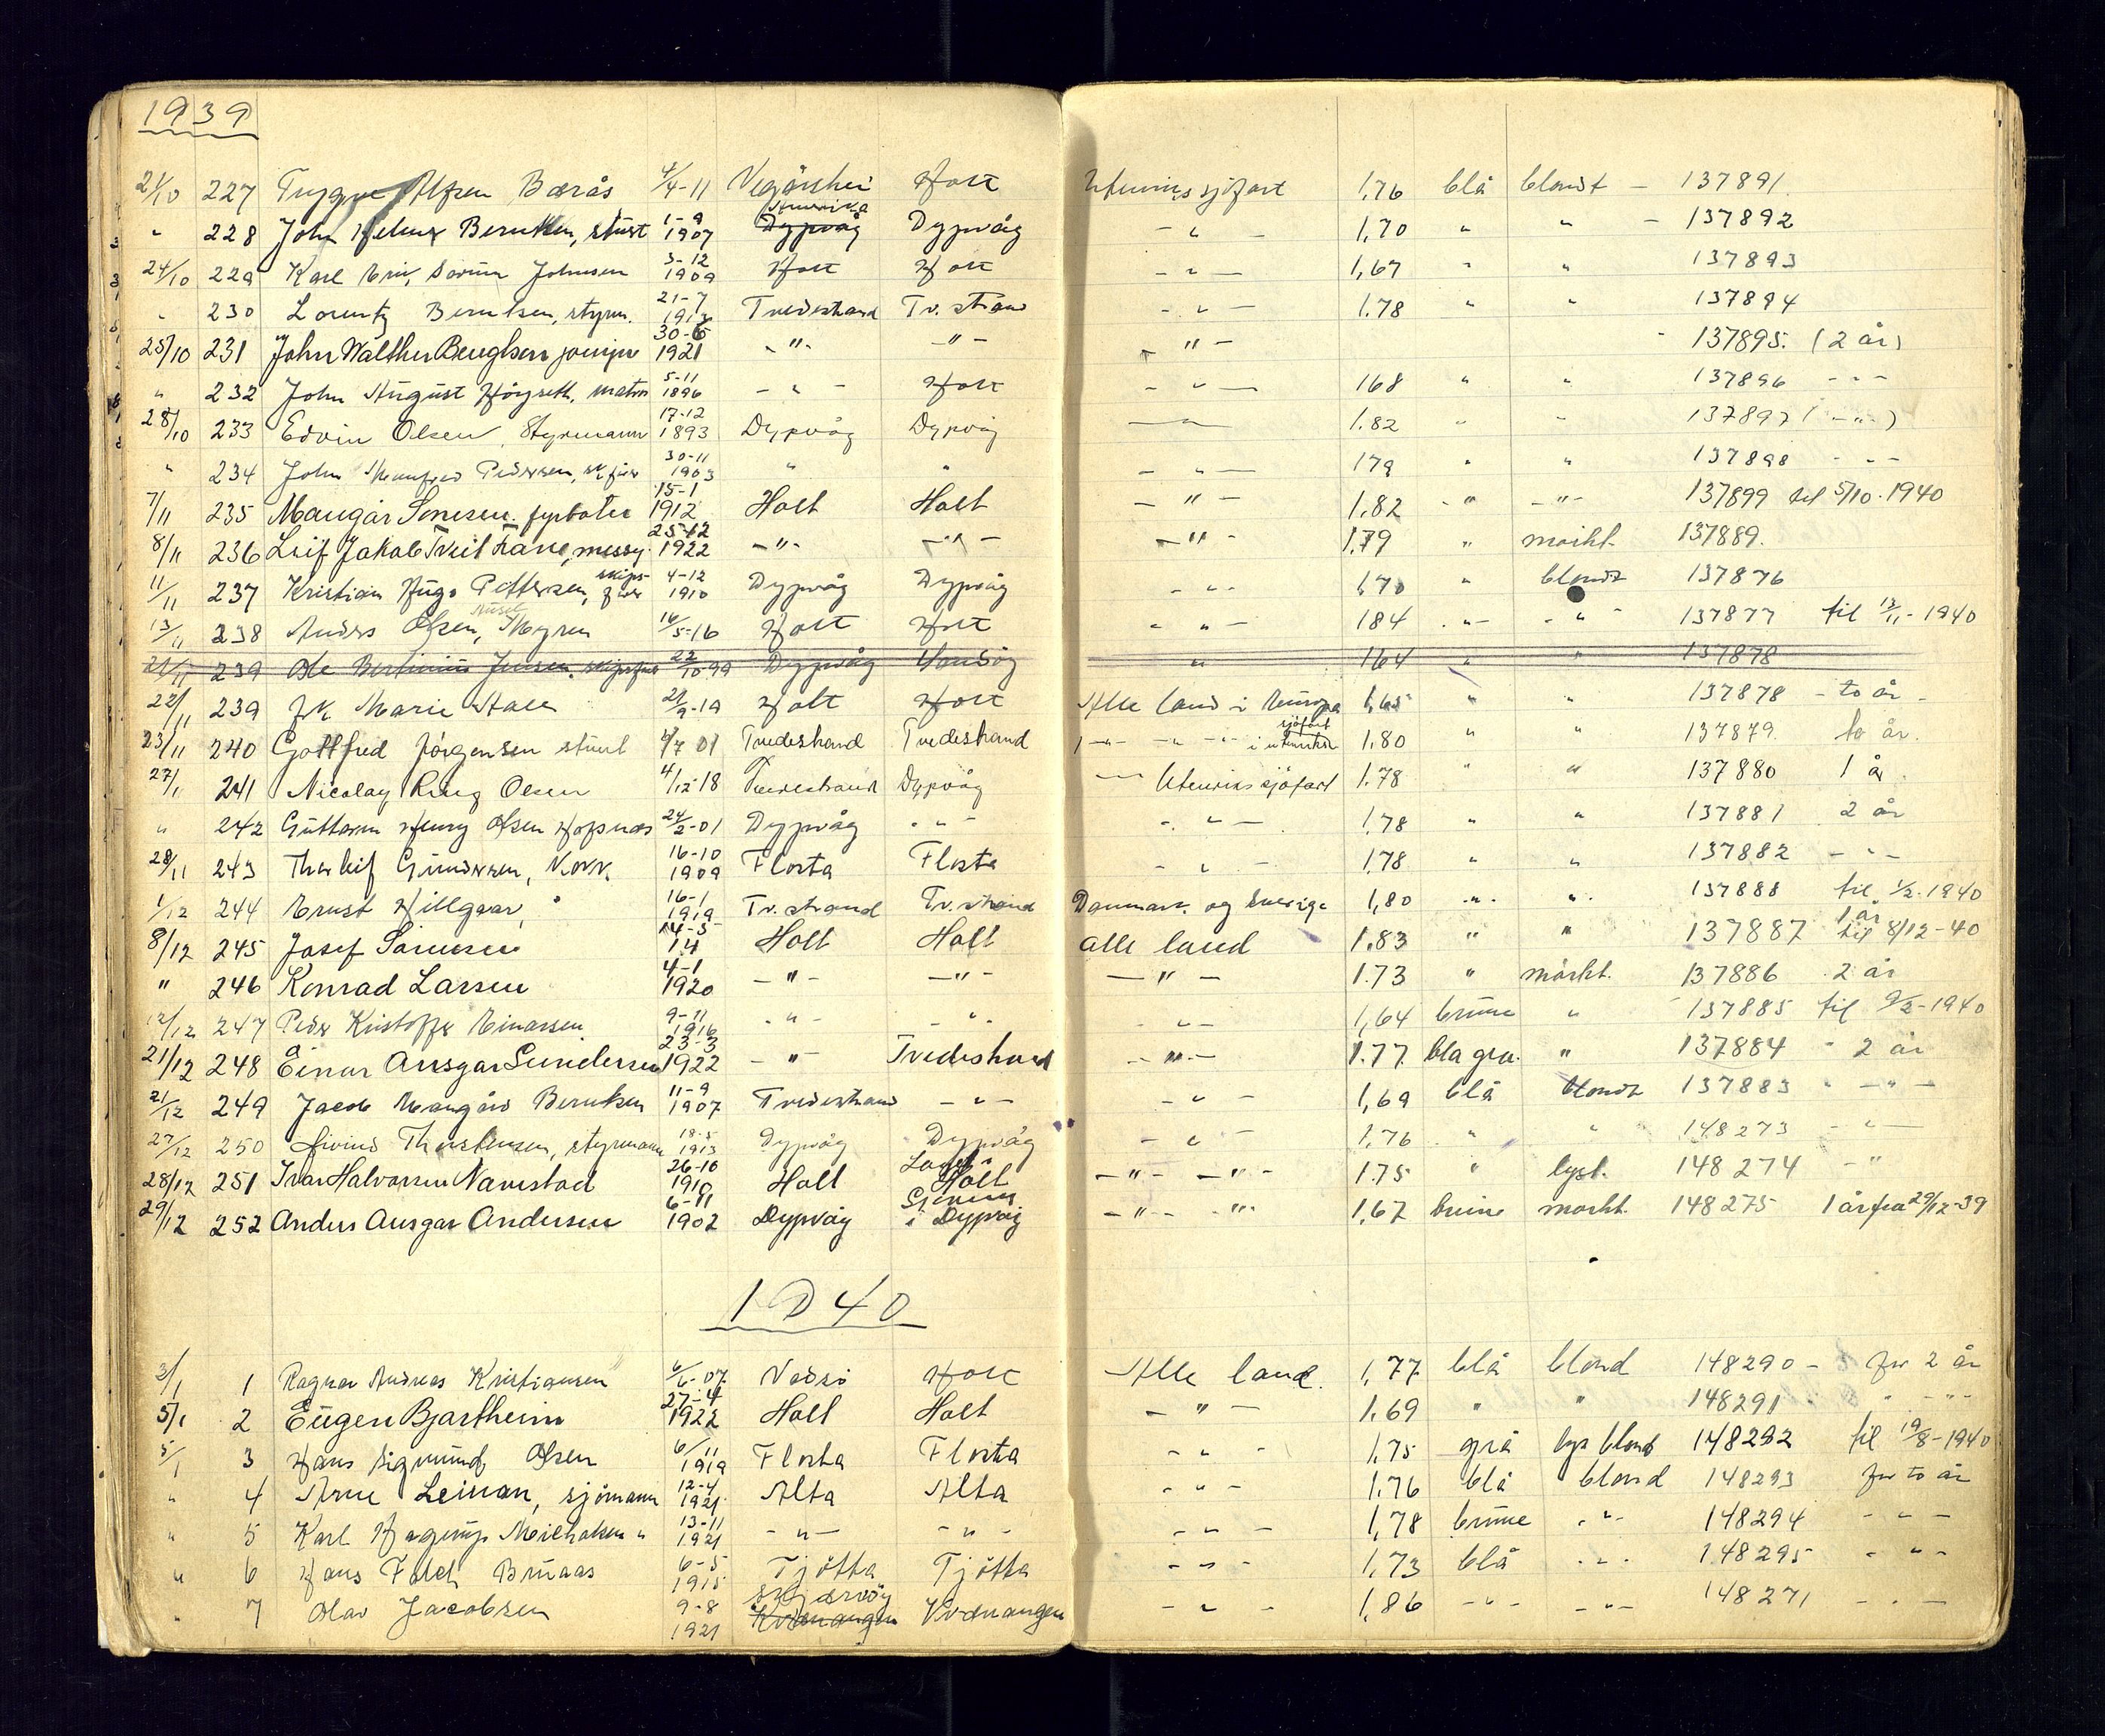 1939
21/10 227 Trygve Alfsen Bærås 4/4-11 Vegårshei Holt Utenrikssjøfart 1,76 blå blondt - 137891
" 228 John Helmer Berntsen, stuert 1-9 1907 Amerika Dypvåg Dypvåg - " - 1,70 " " - 137892
24/10 229 Karl Johnsen 3-12 1909 Holt Holt - " - 1,67 " " 137893
" 230 Lorentz Berntsen, styrm. 21-7 Tvedestrand Tv. strand - " - 1.78 " " 137894
25/10 231 John Walther 30-6 1921 - " - - " - - " - 137895. (2 år)
" 232 John August matros 5-11 1896 - " - Holt - " - 168 " " 137896 - " -
28/10 233 Edvin Olsen, Styrmann 17-12 1893 Dypvåg Dypvåg - " - 1.82 " " 137897 ( - " - )
" 234 John Pedersen, 30-11 1903 " " - " - 179 " " 137898 - " -
7/11 235 Mangår fyrbøter 15-1 1912 Holt Holt - " - 1,82 - " - " - 137899 til 5/10-1940
8/11 236 Leif Jakob Tveit messg. 25-12 1922 - " - - " - - " - 1.79 " mørkt. 137889.
11/11 237 Kristian Hugo Pettersen, skipsfører 4-12 1910 Dypvåg Dypvåg - " - 1,70 " blondt 137876
13/11 238 Anders Olsen, 16/5-16 Holt Holt - " - 184 - " - - " - 137877 til 13/11-1940
21/11 239 Ole Jensen, 22/10-99 Dypvåg " 164 " " 137878
22/11 239 frk Marie 21/9-19 Holt Holt Alle land i Europa 1,65 " " 137878 - to år -
23/11 240 Gottfred Jørgensen stuert 4/7 01 Tvedestrand Tvedestrand - " - - " - i utenriks sjøfart 1.80 " " 137879 to år.
27/11 241 Nicolay Ring Olsen 4/12-18 Tvedestrand Dypvåg - " - Utenrikssjøfart 1.78 " " 137880 1 år
" 242 Guttorm Henry Olsen Hopsnes 24/2-01 Dypvåg - " - - " - 1,78 " " 137881 2 år
28/11 243 Thorleif Gundersen, 16-10 1909 Flosta Flosta - " - 1,78 " " 137882 - " -
1/12 244 Ernst Hillgaar, " 16-1 1919 Tv. strand Tv. strand Danmark og Sverige 1,80 - " - " - 137888 til 1/2-1940
8/12 245 Josef Sørensen 14-5 14 Holt Holt alle land 1.83 " " 137887 1 år til 8/12-40
" 246 Konrad Larsen 4-1 1920 - " - - " - - " - 1.73 " mørkt. 137886 2 år
12/12 247 Peder Kristoffer Einarsen 9-11 1916 - " - - " - - " - 1,64 brune " 137885 til 9/2-1940
21/12 248 Einar Ansgar Gundersen 23-3 1922 - " - Tvedestrand - " - 1.77 blå grå. " 137884 " 2 år
21/12 249 Jacob Berntsen 11-9 1907 Tvedestrand - " - - " - 1,69 blå blondt 137883 " - " -
27/12 250 Eivind Thorstensen, styrmann 18-5 1913 Dypvåg Dypvåg - " - 1,76 " " 148273 - " -
28/12 251 Ivar Halvorsen Navestad 26-10 1910 Holt Holt - " - - " - 1.75 " lyst. 148274 - "
29/12 252 Anders Ansgar Andersen 6-11 1902 Dypvåg i Dypvåg - " - - " - 1,67 brune mørkt. 148275 1 år fra 29/12-39
1940
3/1 1 Ragnar Andreas Kristiansen 6/6-07 Vadsø Holt Alle land. 1,77 blå blond 148290 - for 2 år
5/1 2 Eugen Bjartheim 27-4 1922 Holt Holt - " - 1.69 " " 148291 " - " -
5/1 3 Hans Sigmund Olsen 6/11 1919 Flosta Flosta - " - 1.75 grå lys blond 148292 til 19/8-1940
" 4 Arne Leinan, sjømann 12-4 1921 Alta Alta - " - 1.76 blå blond 148293 for to år
" 5 Karl Hagerup " 13-11 1921 - " - - " - - " - 1,78 brune - " - 148294 - " -
" 6 Hans Falch Bruaas 6-5 1915 Tjøtta Tjøtta - " - 1,73 blå - " - 148295 - " -
" 7 Olav Jacobsen 9-8 1921 Skjervøy Kvænangen Kvænangen - " - 1,86 - " - - " - 148271 - " -